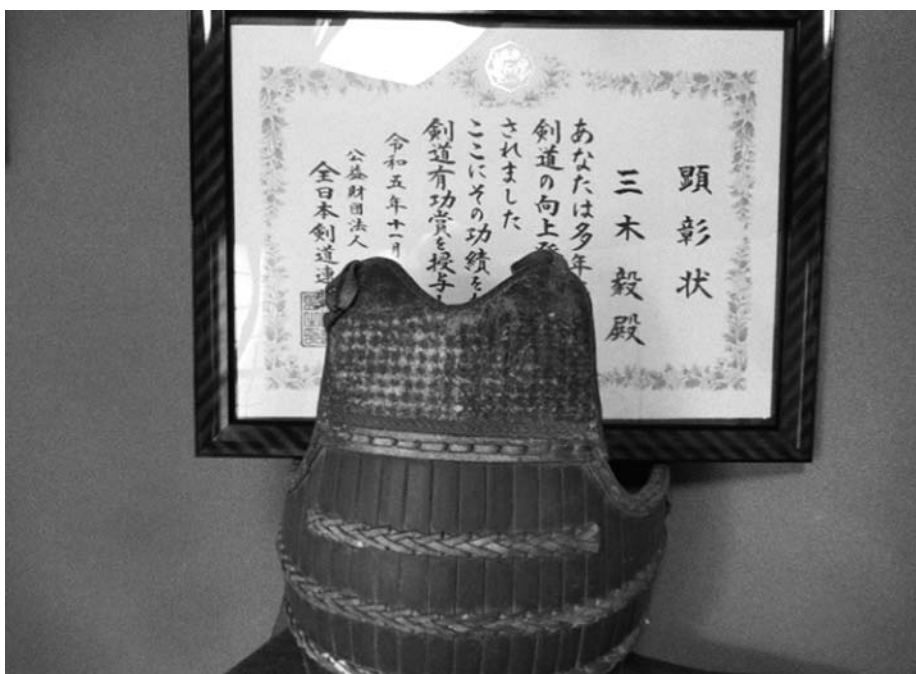 顕彰状
三木毅殿
あなたは多年
剣道の向上発
されました
ここにその功績を
剣道有功賞を授与し
令和五年十一月
公益財団法人
全日本剣道連盟